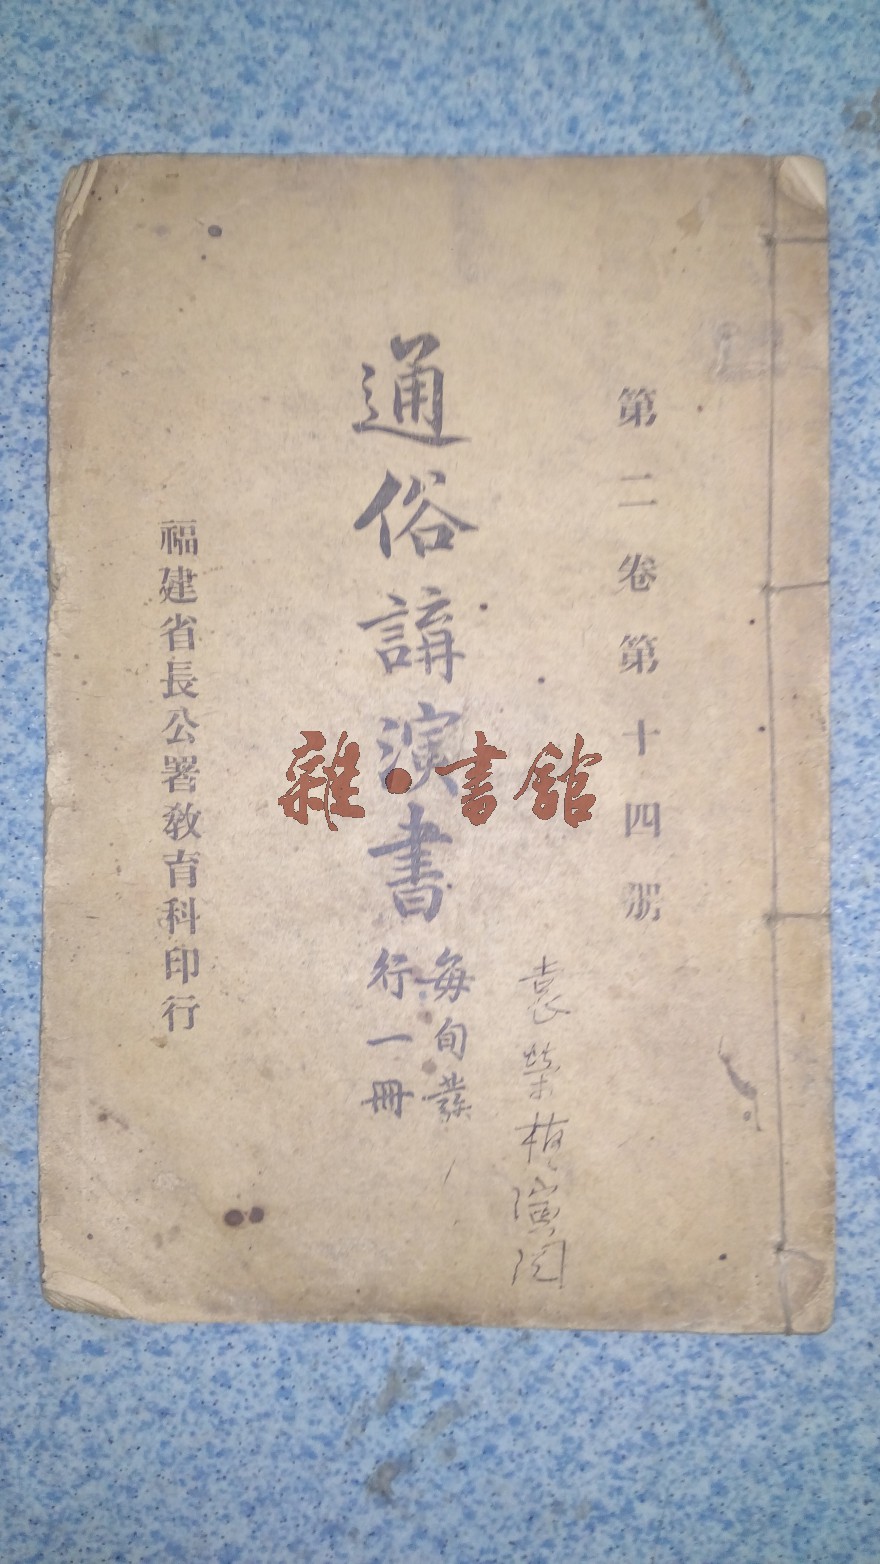 第二卷第十四號
通俗講演書
每旬發
行一冊
福建省長公署教育科印行
雜·書館